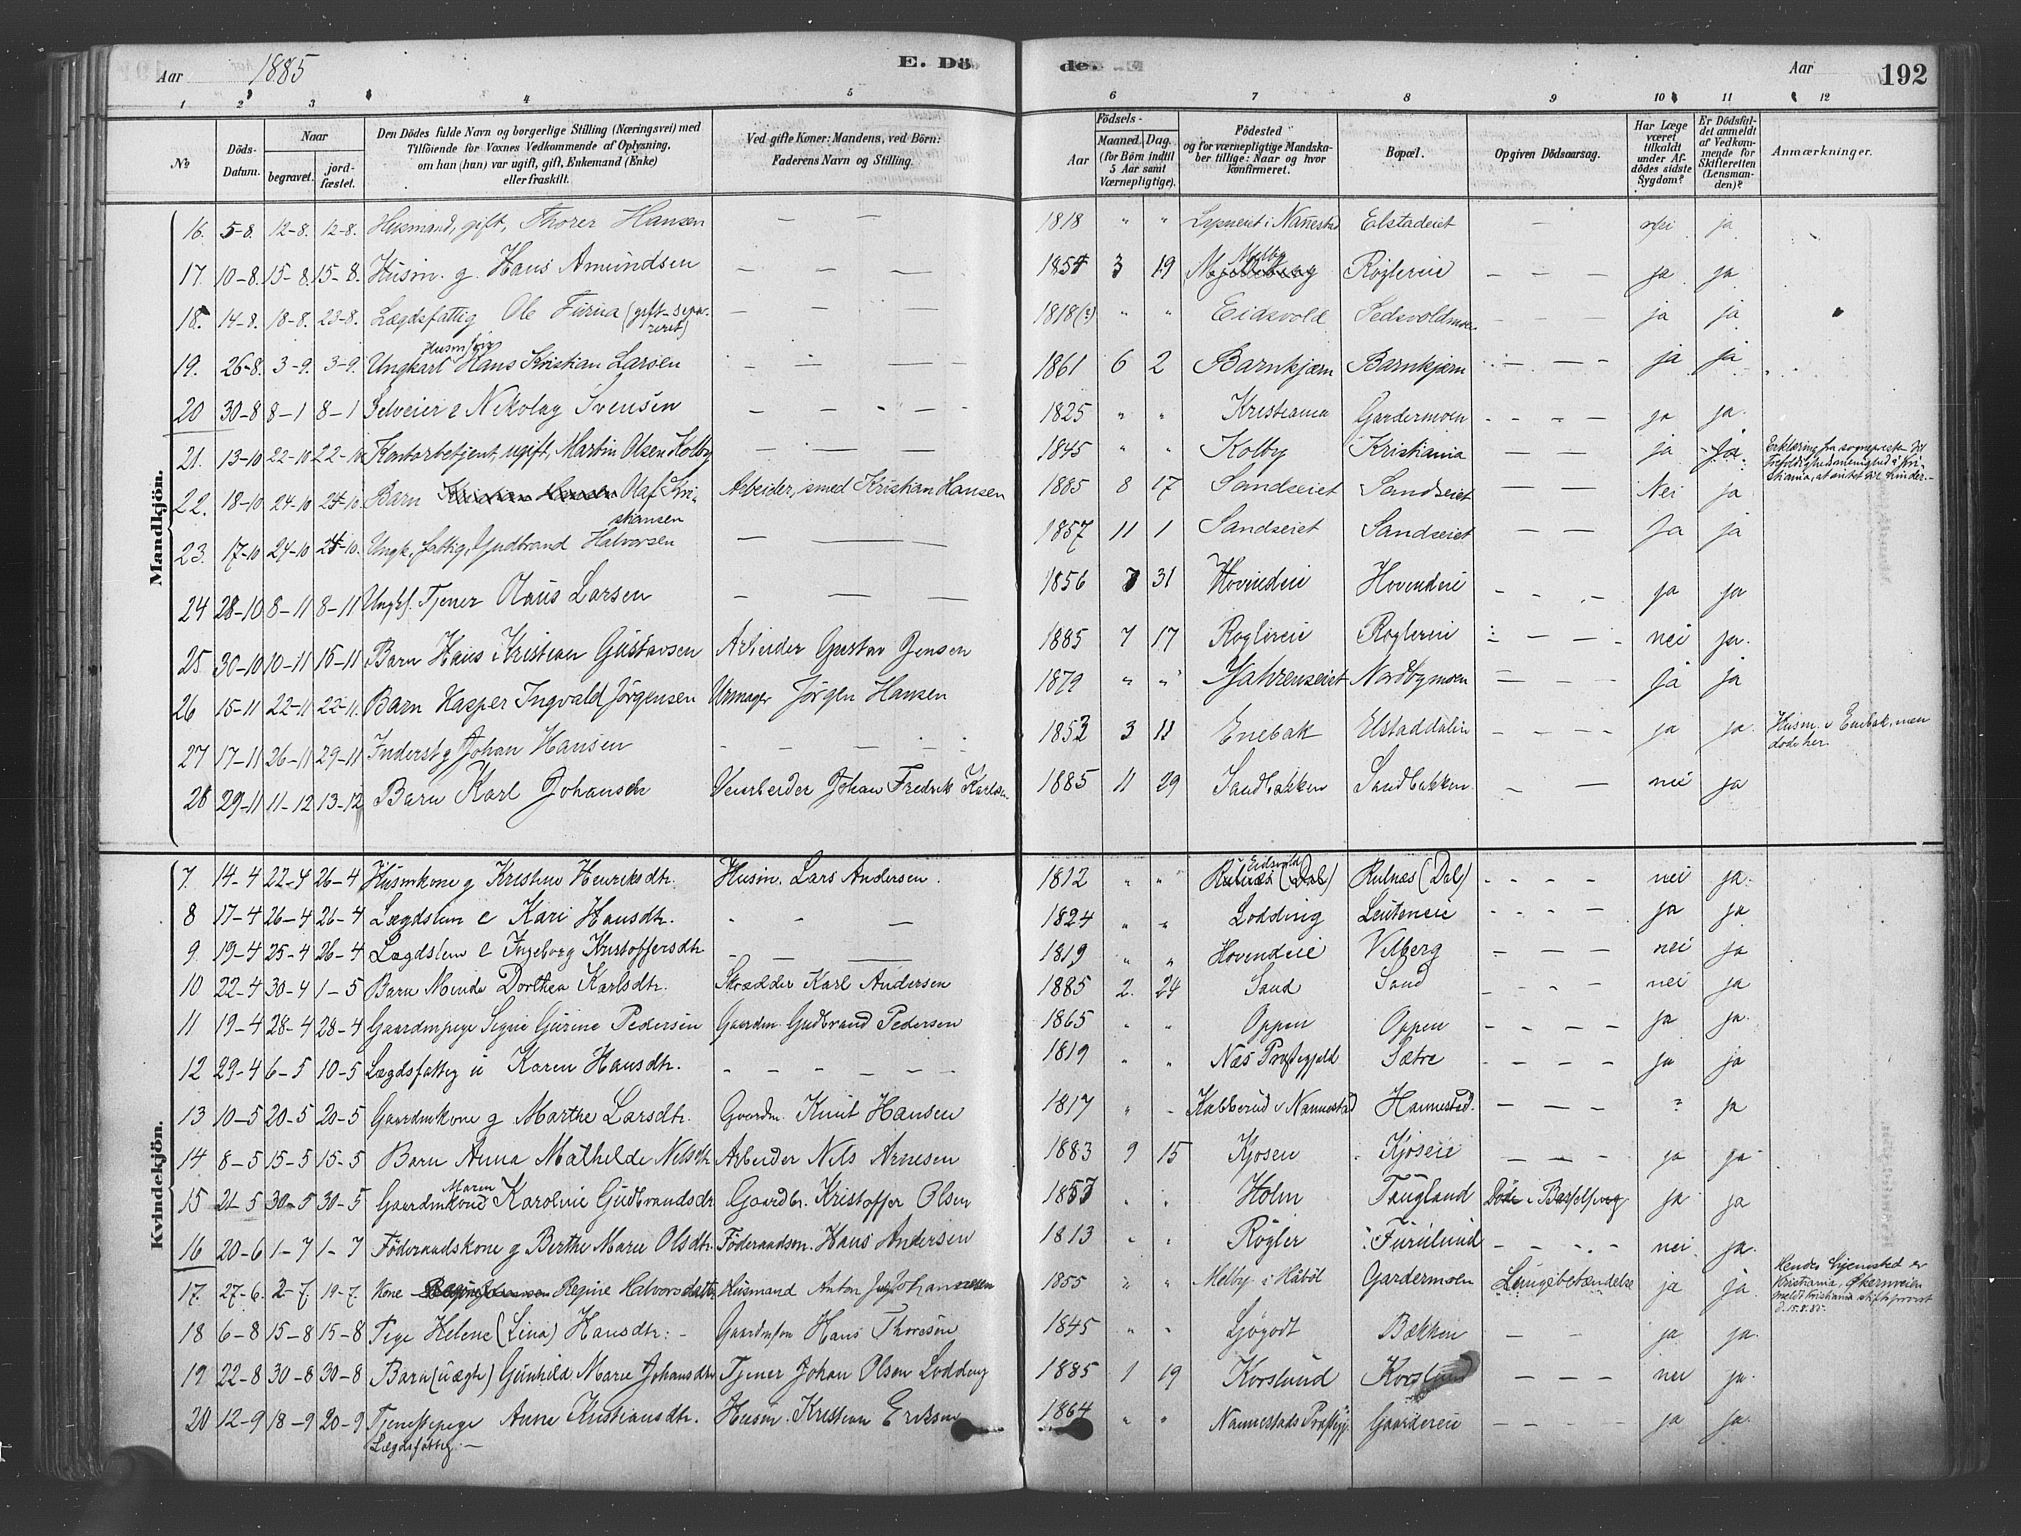 Aar 1885 E. Dö de. Aar 192
1 2 3 4 5 6 7 8 9 10 11 12
№ Döds-Datum. Naar begravet. jord-fæstet. Den Dödes fulde Navn og borgerlige Stilling (Næringsvei) med Tilföiende for Voxnes Vedkommende af Oplysning, om han (hun) var ugift, gift, Enkemand (Enke) eller fraskilt. Ved gifte Koner: Mandens, ved Börn: Faderens Navn og Stilling. Födsels- Aar Maaned. Dag. (for Börn indtil 5 Aar samt Værnepligtige). Födested og for værnepligtige Mandskaber tillige: Naar og hvor konfirmeret. Bopæl. Opgiven Dödsaarsag. Har Læge været tilkaldt under Afdödes sidste Sygdom? Er Dödsfaldet anmeldt af Vedkommende for Skifteretten (Lensmanden)? Anmærkninger.
Mandkjön.
16. 5-8. 12-8. 12-8. Husmand, gift, Thorer Hansen — — — 1818 " " i Nannestad Elstadeiet — nei ja
17. 10-8. 15-8. 15-8. Husm. g. Hans Amundsen — — — 1854 3 19 Melby Röglereie — — — ja ja
18. 14-8. 18-8. 23-8. Lægdsfattig Ole Furua (gift-separeret) — — — 1818(?) " " Eidsvold — — — ja ja
19. 26-8. 3-9. 3-9. Ungkarl Hans Kristian Larsen — — — 1861 6 2 Barnkjærn Barnkjærn — — — ja ja
20 30-8 8-1 8-1 Selveier e Nikolay Svensen — — - — 1825 " " Kristiania Gardermoen — — — ja ja.
21. 13-10 22-10 22-10 Kontorbetjent, ugift, Martin Olsen Kolby 1845 " " Kolby Kristiania ja ja. Erklæring fra sognepresten til Trefoldighedsmenighed i Kristiania, at intet er til hinder.-
22. 18-10 24-10 24-10. Barn Olaf Kristiansen Arbeider, smed Kristian Hansen 1885 8 17 Sandseiet Sandseiet — — — Nei ja
23. 17-10 24-10 24-10. Ungk, fattig, Gudbrand Halvorsen — — — 1857 11 1 Sandseiet Sandseiet — — Ja ja
24 28-10 8-11 8-11 Ungk. Tjener Olaus Larsen — — — 1856 7 31 Hovindeie Hovendeie — - - — ja ja
25. 30-10 10-11 15-11 Barn Hans Kristian Gustavsen Arbeider Gustav Jensen 1885 7 17 Roglereie Roglereie — — — nei ja.
26 15-11 22-11 22-11. Barn Kasper Ingvald Jörgensen Urmager Jörgen Hansen 1879 " " Jahrenseiet Nordbymoen — — — Ja ja
27 17-11 26-11 29-11 Inderst g Johan Hansen - — — — 1853 3 11 Enebak Elstaddalen ja ja. Husm. i Enebak, men döde her.
28 29-11 11-12 13-12 Barn Karl Johansen Veiarbeider Johan Fredrik Karlsen 1885 11 29 Sandbakken Sandbakken - — nei ja
Kvindekjön.
7. 14-4 22-4 26-4 Husmkone g Kristine Henriksdtr. Husm. Lars Andersen. 1812 " " Eidsvold Rulnæs (Dal) Rulnæs (Dal) - - - — nei ja.
8 17-4 26-4 26-4 Lægdslem e Kari Hansdtr. - - — 1824 " " Lodding Leuteneie - - - — ja ja
9. 19-4 25-4 26-4 Lægdslem e Ingeborg Kristoffersdtr - — — 1819 " " Hovendeie Vilberg — - — — nei ja
10 22-4 30-4 1-5 Barn Minda Dorthea Karlsdtr. Skrædder Karl Andersen 1885 2. 24 Sand Sand - - - - nei ja
11 19-4 28-4 28-4 Gaardmpige Signe Gurine Pedersen Gaardm. Gudbrand Pedersen 1865 " " Oppen Oppen - - - — ja ja.
12 29-4 6-5 10-5 Lægdsfattig u Karen Hansdtr. - — — — — 1819 " " Næs Præstegjeld Sætre - — — — ja ja
13 10-5 20-5 20-5 Gaardmkone g Marthe Larsdtr. Gaardm. Knut Hansen 1817 " - Kabberud i Nannestad Hannestad. — — — ? ja
14 8-5 15-5 15-5 Barn Anna Mathilde Nilsdtr Arbeider Nils Arnesen 1883 9 15 Kjosen Kjoseie — — — ja ja
15 21-5 30-5 30-5 Gaardmkone Maren Karoline Gudbrandsdtr Gaardbr. Kristoffer Olsen 1857 " " Holm Taugland Döde i Barselseng ja ja
16 20-6 1-7 1-7 Föderaadskone g Berthe Marie Olsdtr. Föderaadsm. Hans Andersen 1813 " " Rögler Furulund - - - - nei ja.
17. 27-6. 2-7. 19-7. Kone Regine Halvorsdatter Husmand Anton Johannesen 1855 " " Melby i Håböl Gardermoen Lungebetændelse ja ja. Hendes hjemsted er Kristiania, Økernveien meldt Kristiania stiftsprovst d. 15.8.85.
18 6-8 15-8 15-8 Pige Helene (Lina) Hansdtr: - Hans Thoresen 1845 " " Ljögodt Bækken — — — ja ja.
19 22-8 30-8 30-8 Barn (uægte) Gunhild Marie Johansdtr Tjener Johan Olsen Lodding 1885 1 19 Korslund Korslund — — — — nei ja.
20 12-9 18-9 20-9 Tjenestepige Anne Kristiansdtr. Husm. Kristian Eriksen 1864 " " Nannestads Præstgj. Gaardereie — — — — ja ja.
Lægdsfattig. —